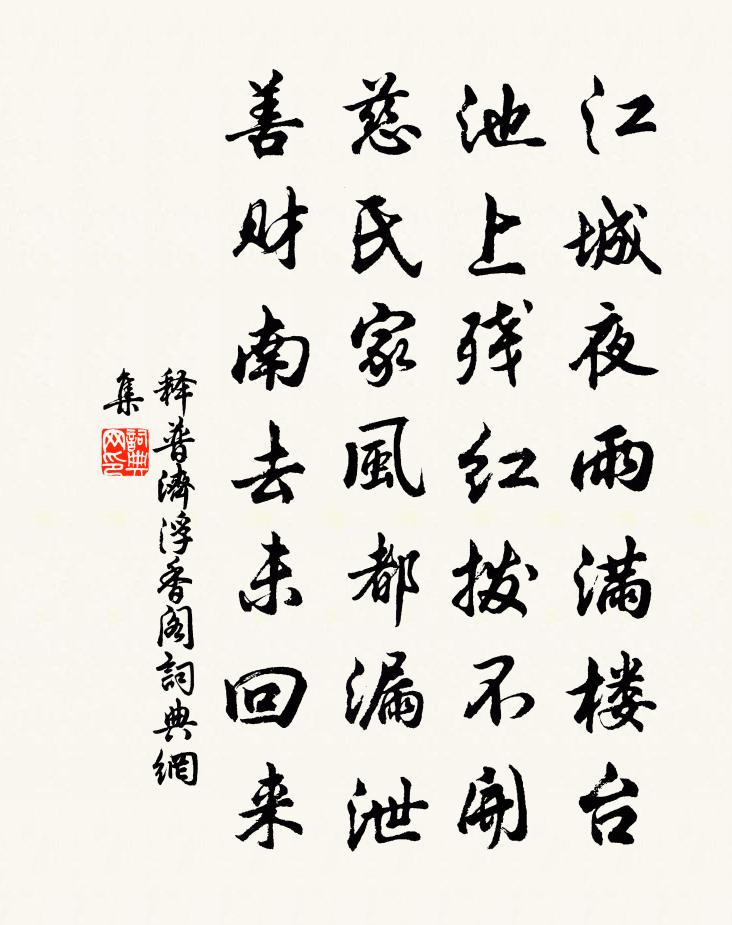 江城夜雨满楼台
池上残红拨不開
慈氏家風都漏泄
善财南去未回来
释普濟浮香阁詞典網
集
詞典网印